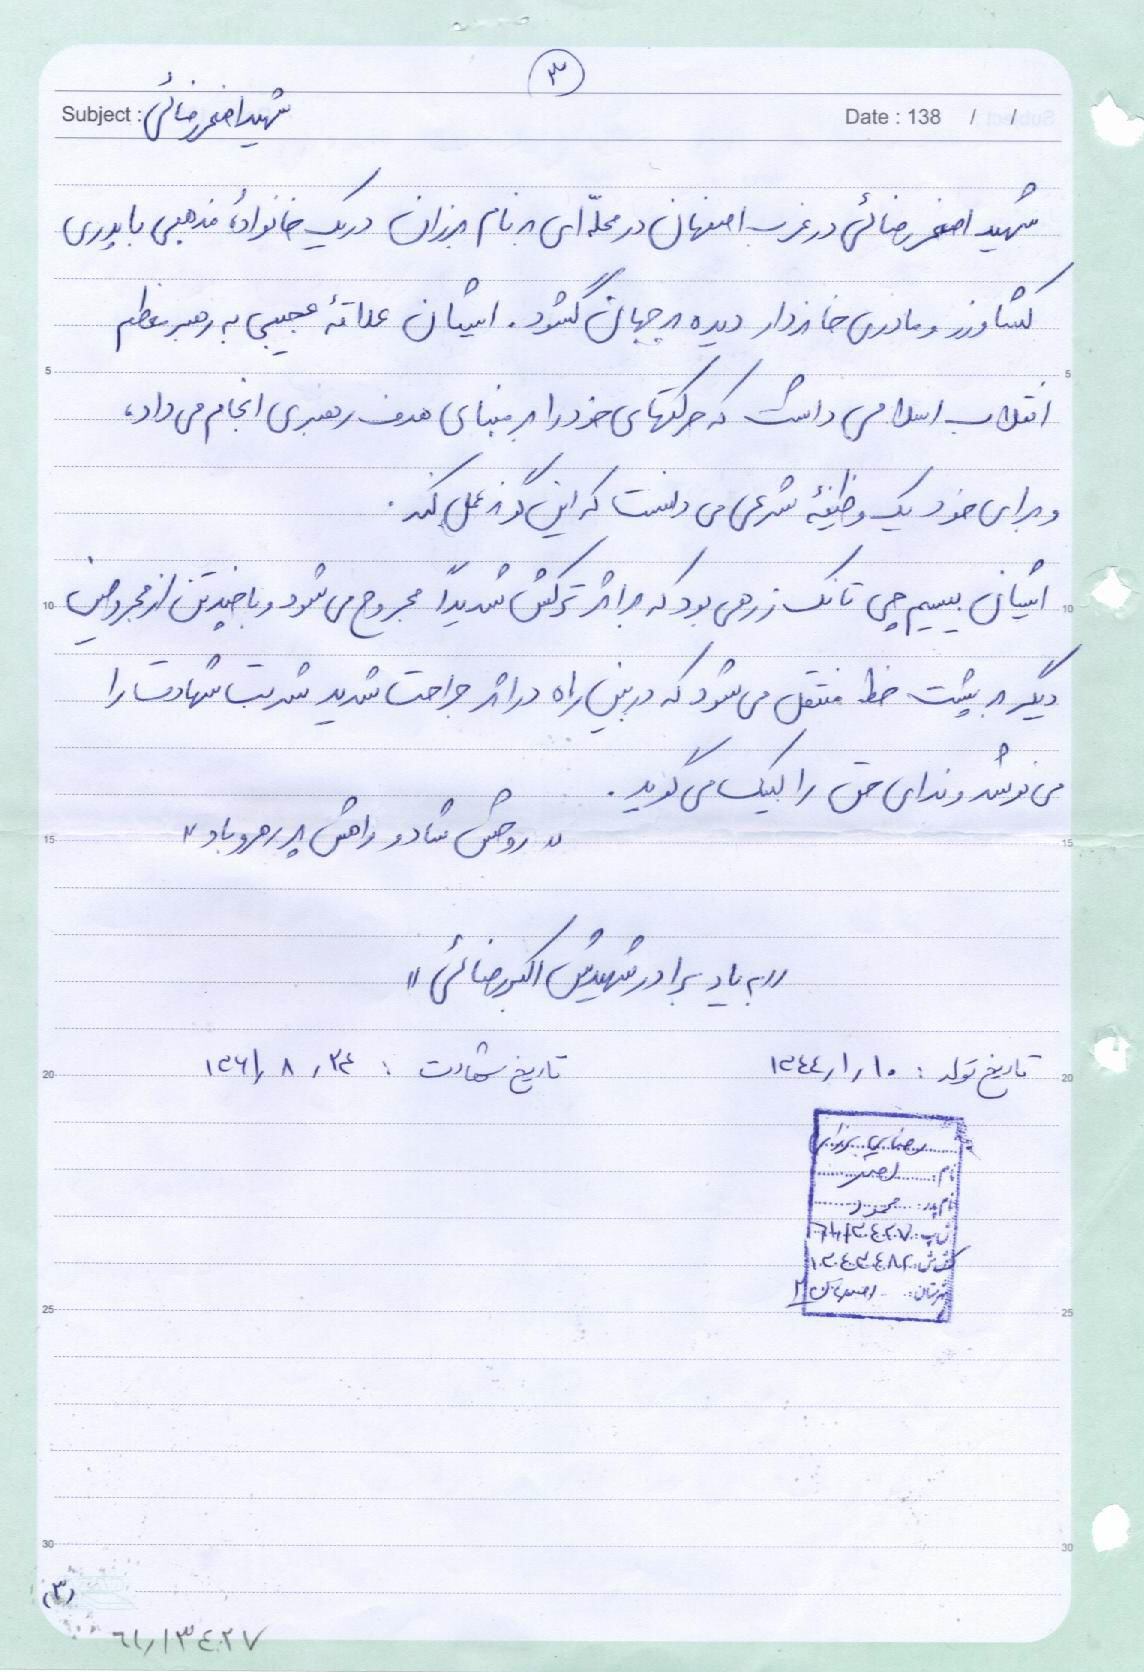 ۳
Subject : شهید اصغر رضائی
Date : 138 / /
شهید اصغر رضائی در غرب اصفهان در محلّه ای به نام برزان در یک خانوادهٔ مذهبی با پدری
کشاورز و مادری خانه دار دیده به جهان گشود. ایشان علاقهٔ عجیبی به رهبر معظم
5 انقلاب اسلامی داشت که حرکتهای خود را بر مبنای هدف رهبری انجام می داد، 5
و برای خود یک وظیفهٔ شرعی می دانست که این گونه عمل کند.
10 ایشان بیسیم چی تانک زرهی بود که بر اثر ترکش شدیداً مجروح می شود و با چند تن از مجروحین 10
دیگر به پشت خط منتقل می شود که در بین راه در اثر جراحت شدید شربت شهادت را
می نوشد و ندای حق را لبیک می گوید.
15 « روحش شاد و راهش پر رهرو باد » 15
« به یاد برادر شهیدش اکبر رضائی »
تاریخ تولد : ۱۳۴۴/۱/۱۰ تاریخ شهادت : ۱۳۶۱/۸/۲۴
20 20
رضایی برزانی
نام: اصغر
نام پدر: محمود
ش پ: ۶۱/۱۳۴۲۷
کد ش: ۱۰۳۰۴۳۴۸۲
شهرستان: اصفهان ۲
25 25
30 30
(۳)
۶۱/۱۳۴۲۷